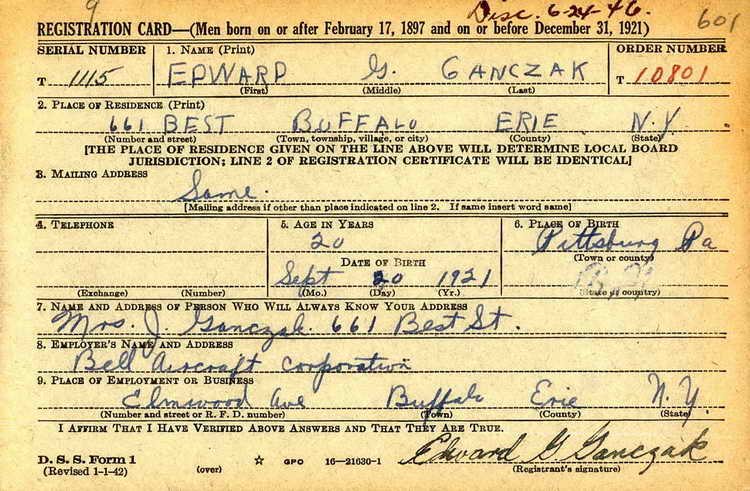 9
Disc. 6-24-46.
601
REGISTRATION CARD—(Men born on or after February 17, 1897 and on or before December 31, 1921)
SERIAL NUMBER 1. NAME (Print) ORDER NUMBER
T 1115 EDWARD G. GANCZAK T 10801
(First) (Middle) (Last)
2. PLACE OF RESIDENCE (Print)
661 BEST BUFFALO ERIE N.Y
(Number and street) (Town, township, village, or city) (County) (State)
[THE PLACE OF RESIDENCE GIVEN ON THE LINE ABOVE WILL DETERMINE LOCAL BOARD
JURISDICTION; LINE 2 OF REGISTRATION CERTIFICATE WILL BE IDENTICAL]
3. MAILING ADDRESS
Same.
[Mailing address if other than place indicated on line 2. If same insert word same]
4. TELEPHONE 5. AGE IN YEARS 6. PLACE OF BIRTH
20 Pittsburg Pa
(Town or county)
DATE OF BIRTH
Sept 20 1921
(Exchange) (Number) (Mo.) (Day) (Yr.) (State or country)
7. NAME AND ADDRESS OF PERSON WHO WILL ALWAYS KNOW YOUR ADDRESS
Mrs. J. Ganczak. 661 Best St.
8. EMPLOYER'S NAME AND ADDRESS
Bell Aircraft Corporation
9. PLACE OF EMPLOYMENT OR BUSINESS
Elmwood Ave Buffalo Erie N.Y.
(Number and street or R. F. D. number) (Town) (County) (State)
I AFFIRM THAT I HAVE VERIFIED ABOVE ANSWERS AND THAT THEY ARE TRUE.
Edward G Ganczak
D. S. S. Form 1
(Revised 1-1-42) (over) ☆ GPO 16—21630-1 (Registrant's signature)